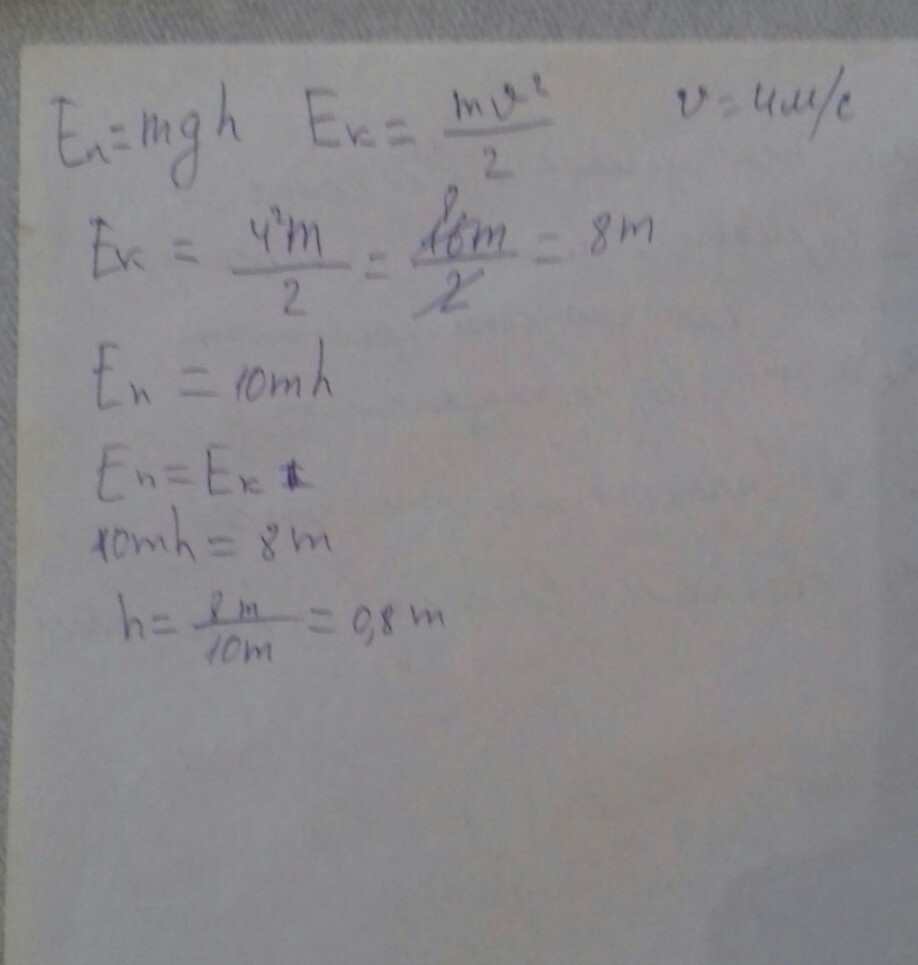 Eп = mgh Eк = mv²/2 v = 4 м/с
Eк = 4²m/2 = 16m/2 = 8m
Eп = 10mh
Eп = Eк
10mh = 8m
h = 8m/10m = 0,8 m